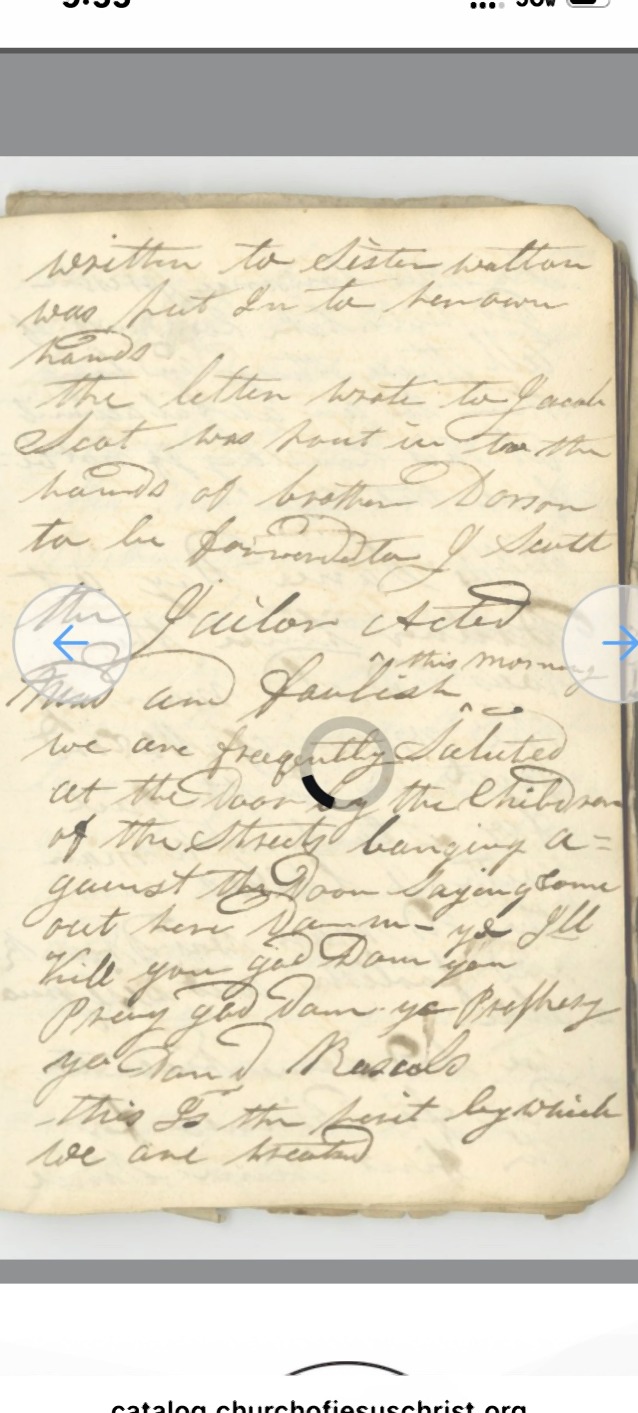 written to Sister walton
was put In to her own
hands
the letter wrote to Jacob
Scot was pout in to the
hands of brother Dorson
to be forwerd to J Scott
the Jailor Acted
this morning
and foulish
we are freqently Saluted
at the Door by the Children
of the Streets banging a=
gainst the Door Saying Come
out here Damm- ye Ill
Kill you god Dam you
Pray god dam ye Prophesy
ye Dand Rascols
this Is the spirit by which
we are treated
catalog.churchofjesuschrist.org